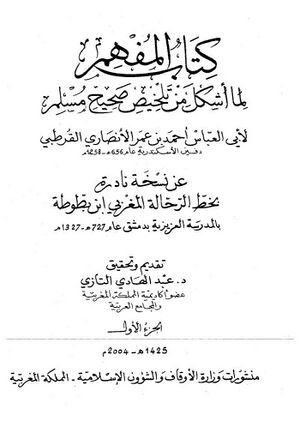 كتاب المفهم
لما أشكل من تلخيص صحيح مسلم
لأبي العباس أحمد بن عمر الأنصاري القرطبي
دفين الأسكندرية عام 656هـ-1258م
عن نسخة نادرة
بخط الرحالة المغربي ابن بطوطة
بالمدرسة العزيزية بدمشق عام 727هـ-1327م
تقديم وتحقيق
د. عبد الهادي التازي
عضو أكاديمية المملكة المغربية
والمجامع العربية
الجزء الأول
1425هـ-2004م
منشورات وزارة الأوقاف والشؤون الإسلامية - المملكة المغربية